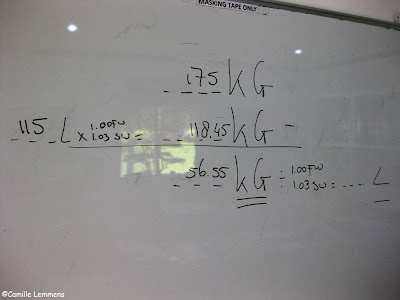 MASKING TAPE ONLY
175 KG
115 L x 1.00FW 1.03 SW = 118.45 KG -
56.55 KG ÷ 1.00FW 1.03 SW = .... L
©Camille Lemmens